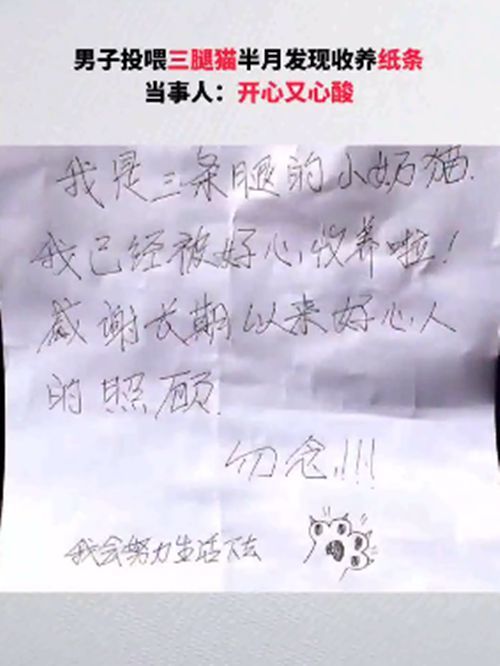 男子投喂三腿猫半月发现收养纸条
当事人：开心又心酸
我是三条腿的小奶猫.
我已经被好心收养啦！
感谢长期以来好心人
的照顾.
勿念！！！
我会努力生活下去